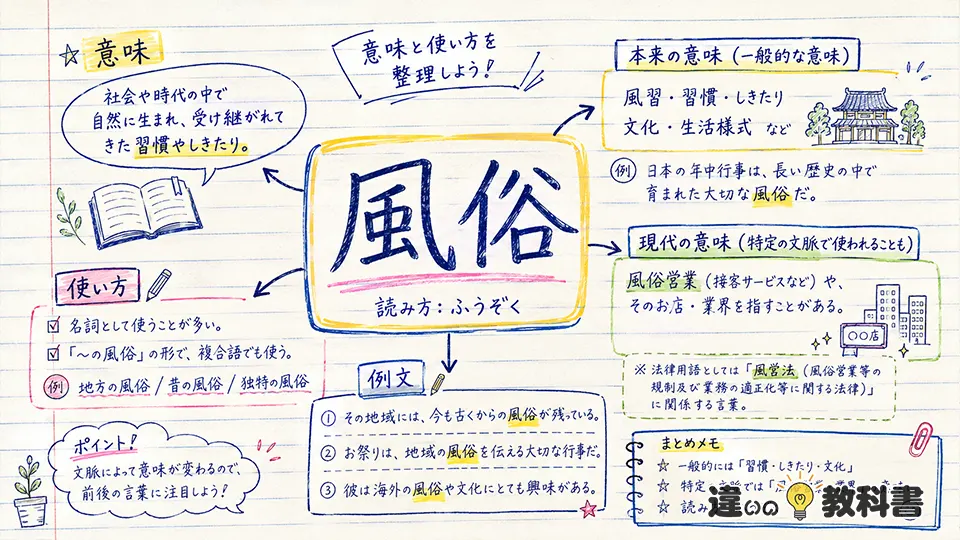 意味
社会や時代の中で
自然に生まれ、受け継がれて
きた習慣やしきたり。
意味と使い方を
整理しよう!
本来の意味(一般的な意味)
風習・習慣・しきたり
文化・生活様式 など
例 日本の年中行事は、長い歴史の中で
育まれた大切な風俗だ。
風俗
読み方:ふうぞく
現代の意味(特定の文脈で使われることも)
風俗営業(接客サービスなど)や、
そのお店・業界を指すことがある。
〇〇店
※ 法律用語としては「風営法(風俗営業等の
規制及び業務の適正化等に関する法律)」
に関係する言葉。
使い方
名詞として使うことが多い。
「〜の風俗」の形で、複合語でも使う。
例 地方の風俗 / 昔の風俗 / 独特の風俗
例文
① その地域には、今も古くからの風俗が残っている。
② お祭りは、地域の風俗を伝える大切な行事だ。
③ 彼は海外の風俗や文化にとても興味がある。
ポイント!
文脈によって意味が変わるので、
前後の言葉に注目しよう!
まとめメモ
☆ 一般的には「習慣・しきたり・文化」
☆ 特定
では「
☆ 読み
違いの教科書